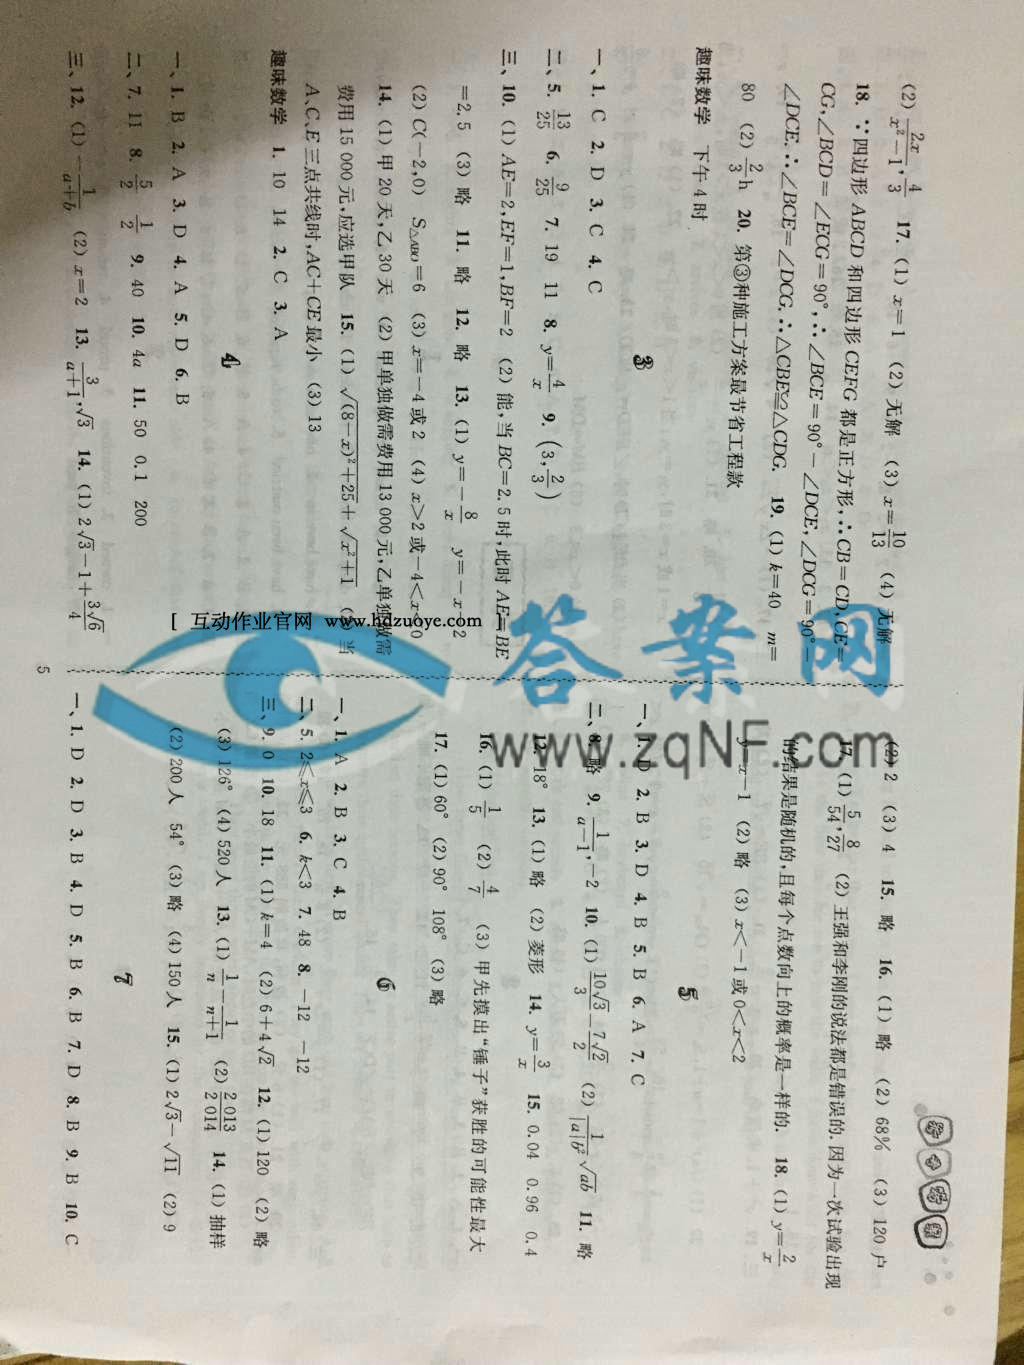 (2) 2x/(x²−1), 4/3 17. (1) x=1 (2) 无解 (3) x=10/13 (4) 无解
18. ∵四边形 ABCD 和四边形 CEFG 都是正方形,∴CB=CD,CE=
CG,∠BCD=∠ECG=90°,∴∠BCE=90°−∠DCE,∠DCG=90°−
∠DCE.∴∠BCE=∠DCG.∴△CBE≌△CDG. 19. (1) k=40 m=
80 (2) 2/3 h 20. 第③种施工方案最节省工程款
趣味数学 下午 4 时
3
一、1. C 2. D 3. C 4. C
二、5. 13/25 6. 9/25 7. 19 11 8. y=4/x 9. (3, 2/3)
三、10. (1) AE=2,EF=1,BF=2 (2) 能,当 BC=2.5 时,此时 AE=BE
=2.5 (3) 略 11. 略 12. 略 13. (1) y=−8/x y=−x−2
(2) C(−2,0) S△ABO=6 (3) x=−4 或 2 (4) x>2 或−4<x<0
14. (1) 甲 20 天,乙 30 天 (2) 甲单独做需费用 13 000 元,乙单独做需
费用 15 000 元,应选甲队 15. (1) √((8−x)²+25)+√(x²+1) (2) 当
A、C、E 三点共线时,AC+CE 最小 (3) 13
趣味数学 1. 10 14 2. C 3. A
4
一、1. B 2. A 3. D 4. A 5. D 6. B
二、7. 11 8. 5/2 1/2 9. 40 10. 4a 11. 50 0.1 200
三、12. (1) −1/(a+b) (2) x=2 13. 3/(a+1), √3 14. (1) 2√3−1+3√6/4
(2) 2 (3) 4 15. 略 16. (1) 略 (2) 68% (3) 120 户
17. (1) 5/54, 8/27 (2) 王强和李刚的说法都是错误的.因为一次试验出现
的结果是随机的,且每个点数向上的概率是一样的. 18. (1) y=2/x
y=x−1 (2) 略 (3) x<−1 或 0<x<2
5
一、1. D 2. B 3. D 4. B 5. B 6. A 7. C
二、8. 略 9. 1/(a−1), −2 10. (1) 10√3/3−7√2/2 (2) 1/(|a|b²)√ab 11. 略
12. 18° 13. (1) 略 (2) 菱形 14. y=3/x 15. 0.04 0.96 0.4
16. (1) 1/5 (2) 4/7 (3) 甲先摸出“锤子”获胜的可能性最大
17. (1) 60° (2) 90° 108° (3) 略
6
一、1. A 2. B 3. C 4. B
二、5. 2≤x≤3 6. k<3 7. 48 8. −12 −12
三、9. 0 10. 18 11. (1) k=4 (2) 6+4√2 12. (1) 120 (2) 略
(3) 126° (4) 520 人 13. (1) 1/n−1/(n+1) (2) 2 013/2 014 14. (1) 抽样
(2) 200 人 54° (3) 略 (4) 150 人 15. (1) 2√3−√11 (2) 9
7
一、1. D 2. D 3. B 4. D 5. B 6. B 7. D 8. B 9. B 10. C
5
[ 互动作业官网 www.hdzuoye.com
答案网
www.zqNF.com
参考答案